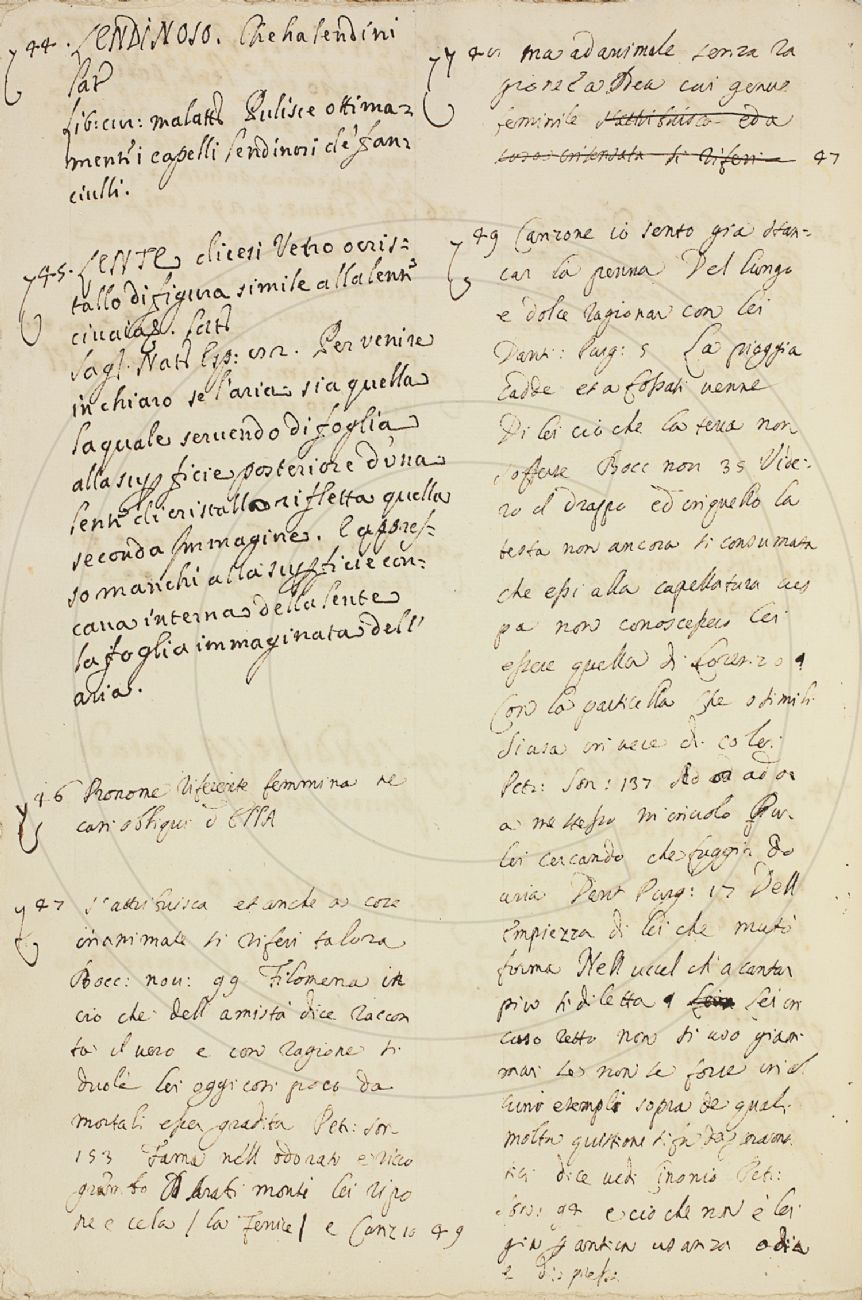 44. LENDINOSO. Che ha lendini
Lat
Lib: cur: malatt Pulisce ottima=
mente i capelli lendinosi de' fan=
ciulli.
45. LENTE, dicesi Vetro o cris=
tallo di figura simile alla lente
civaia. Latt
Sagg. Natt Esp: 132. Per venire
in chiaro se l'aria sia quella
la quale servendo di foglia
alla superficie posteriore d'una
lente di cristallo rifletta quella
seconda Immagine. E appres=
so manchi alla superficie con=
cava interna della lente
la foglia immaginata dell'
aria.
46 Pronome riferente femmina ne
casi obliqui d ELLA
47 s'attribuisca et anche a cose
inanimate si riferi talora
Bocc: nov: 99 Filomena in
cio che dell amistà dice raccon
ta il vero e con ragione si
duole lei oggi cosi poco da
mortali esser gradita Petr: Son
153 Fama nell odorato e ricco
grembo D Arabi monti lei ripo
ne e cela / la Fenice / e Canz 10 49
48 ma ad animale senza ra
gione La Dea cui genus
feminile s'attribuisca ed a
cosa insensata si riferi 47
49 Canzone io sento già stan=
car la penna Del lungo
e dolce ragionar con lei
Dant: Purg: 5 La pioggia
Cadde et a fossati venne
Di lei ciò che la terra non
sofferse Bocc nov 35 Vide=
ro il drappo ed in quello la
testa non ancora si consumata
che essi alla capellatura cres
pa non conoscessero lei
essere quella di Lorenzo
Con la particella Che o simili
si usa in vece di colei
Petr: Son: 137 Ad or ad or
a me stesso m'involo Pur
lei cercando che fuggir do
vria Dant Purg: 17 Dell
Empiezza di lei che mutò
forma Nell uccel ch a cantar
più si diletta Lei in
caso retto non si usò giam
mai se non se forse in al
cuno esempio sopra de quali
molta quistione si fa da gramma
tici dice vedi Cinonio Petr:
Son: 94 e cio che non è lei
già per antica usanza odia
e disprezza